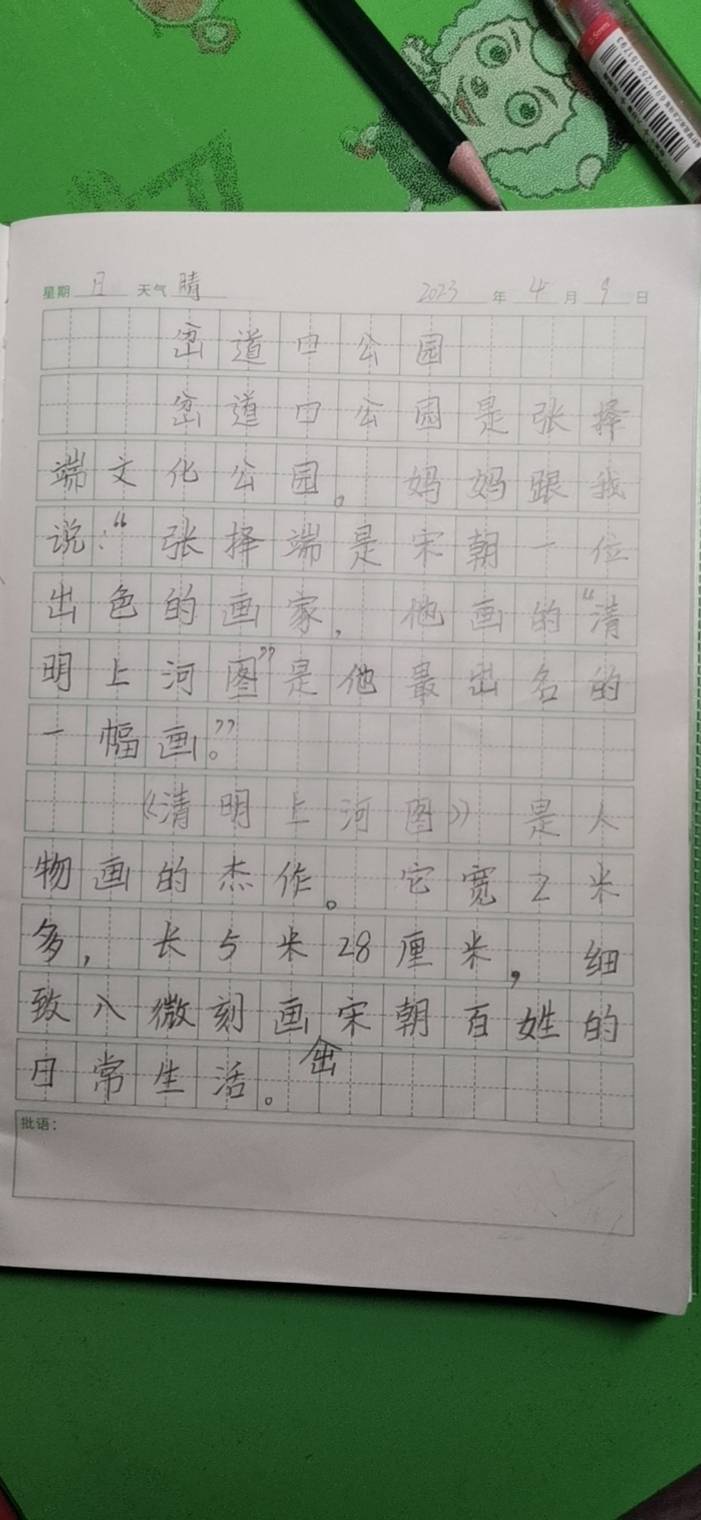 星期 日 天气 晴 2023 年 4 月 9 日
岔道口公园
岔道口公园是张择
端文化公园。妈妈跟我
说:“张择端是宋朝一位
出色的画家,他画的“清
明上河图”是他最出名的
一幅画。”
《清明上河图》是人
物画的杰作。它宽2米
多,长5米28厘米,细
致入微刻画宋朝百姓的
日常生活。
批语: